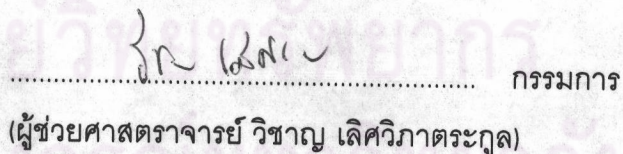 ........................................................ กรรมการ
(ผู้ช่วยศาสตราจารย์ วิชาญ เลิศวิภาตระกูล)